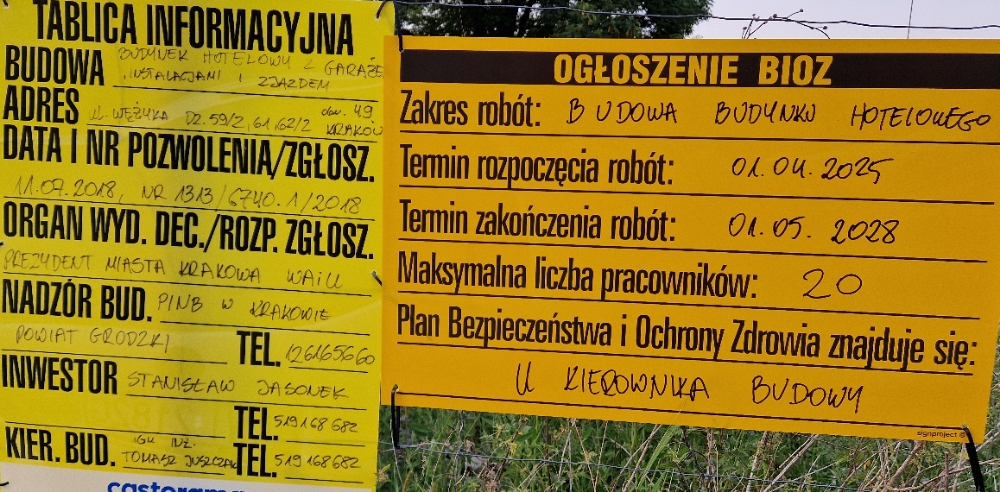 TABLICA INFORMACYJNA
BUDOWA BUDYNEK HOTELOWY Z GARAŻE
INSTALACJAMI I ZJAZDEM
ADRES UL. WĘŻYKA DZ. 59/2, 61, 62/2 obr. 49 KRAKÓW
DATA I NR POZWOLENIA/ZGŁOSZ.
11.07.2018, NR 1313/6740.1/2018
ORGAN WYD. DEC./ROZP. ZGŁOSZ.
PREZYDENT MIASTA KRAKOWA WAiU
NADZÓR BUD. PINB W KRAKOWIE
POWIAT GRODZKI TEL. 126165660
INWESTOR STANISŁAW JASONEK
TEL. 519168682
KIER. BUD. INŻ. TOMASZ JUSZCZAK TEL. 519168682
castorama
OGŁOSZENIE BIOZ
Zakres robót: BUDOWA BUDYNKU HOTELOWEGO
Termin rozpoczęcia robót: 01.04.2025
Termin zakończenia robót: 01.05.2028
Maksymalna liczba pracowników: 20
Plan Bezpieczeństwa i Ochrony Zdrowia znajduje się:
U KIEROWNIKA BUDOWY
signproject ©